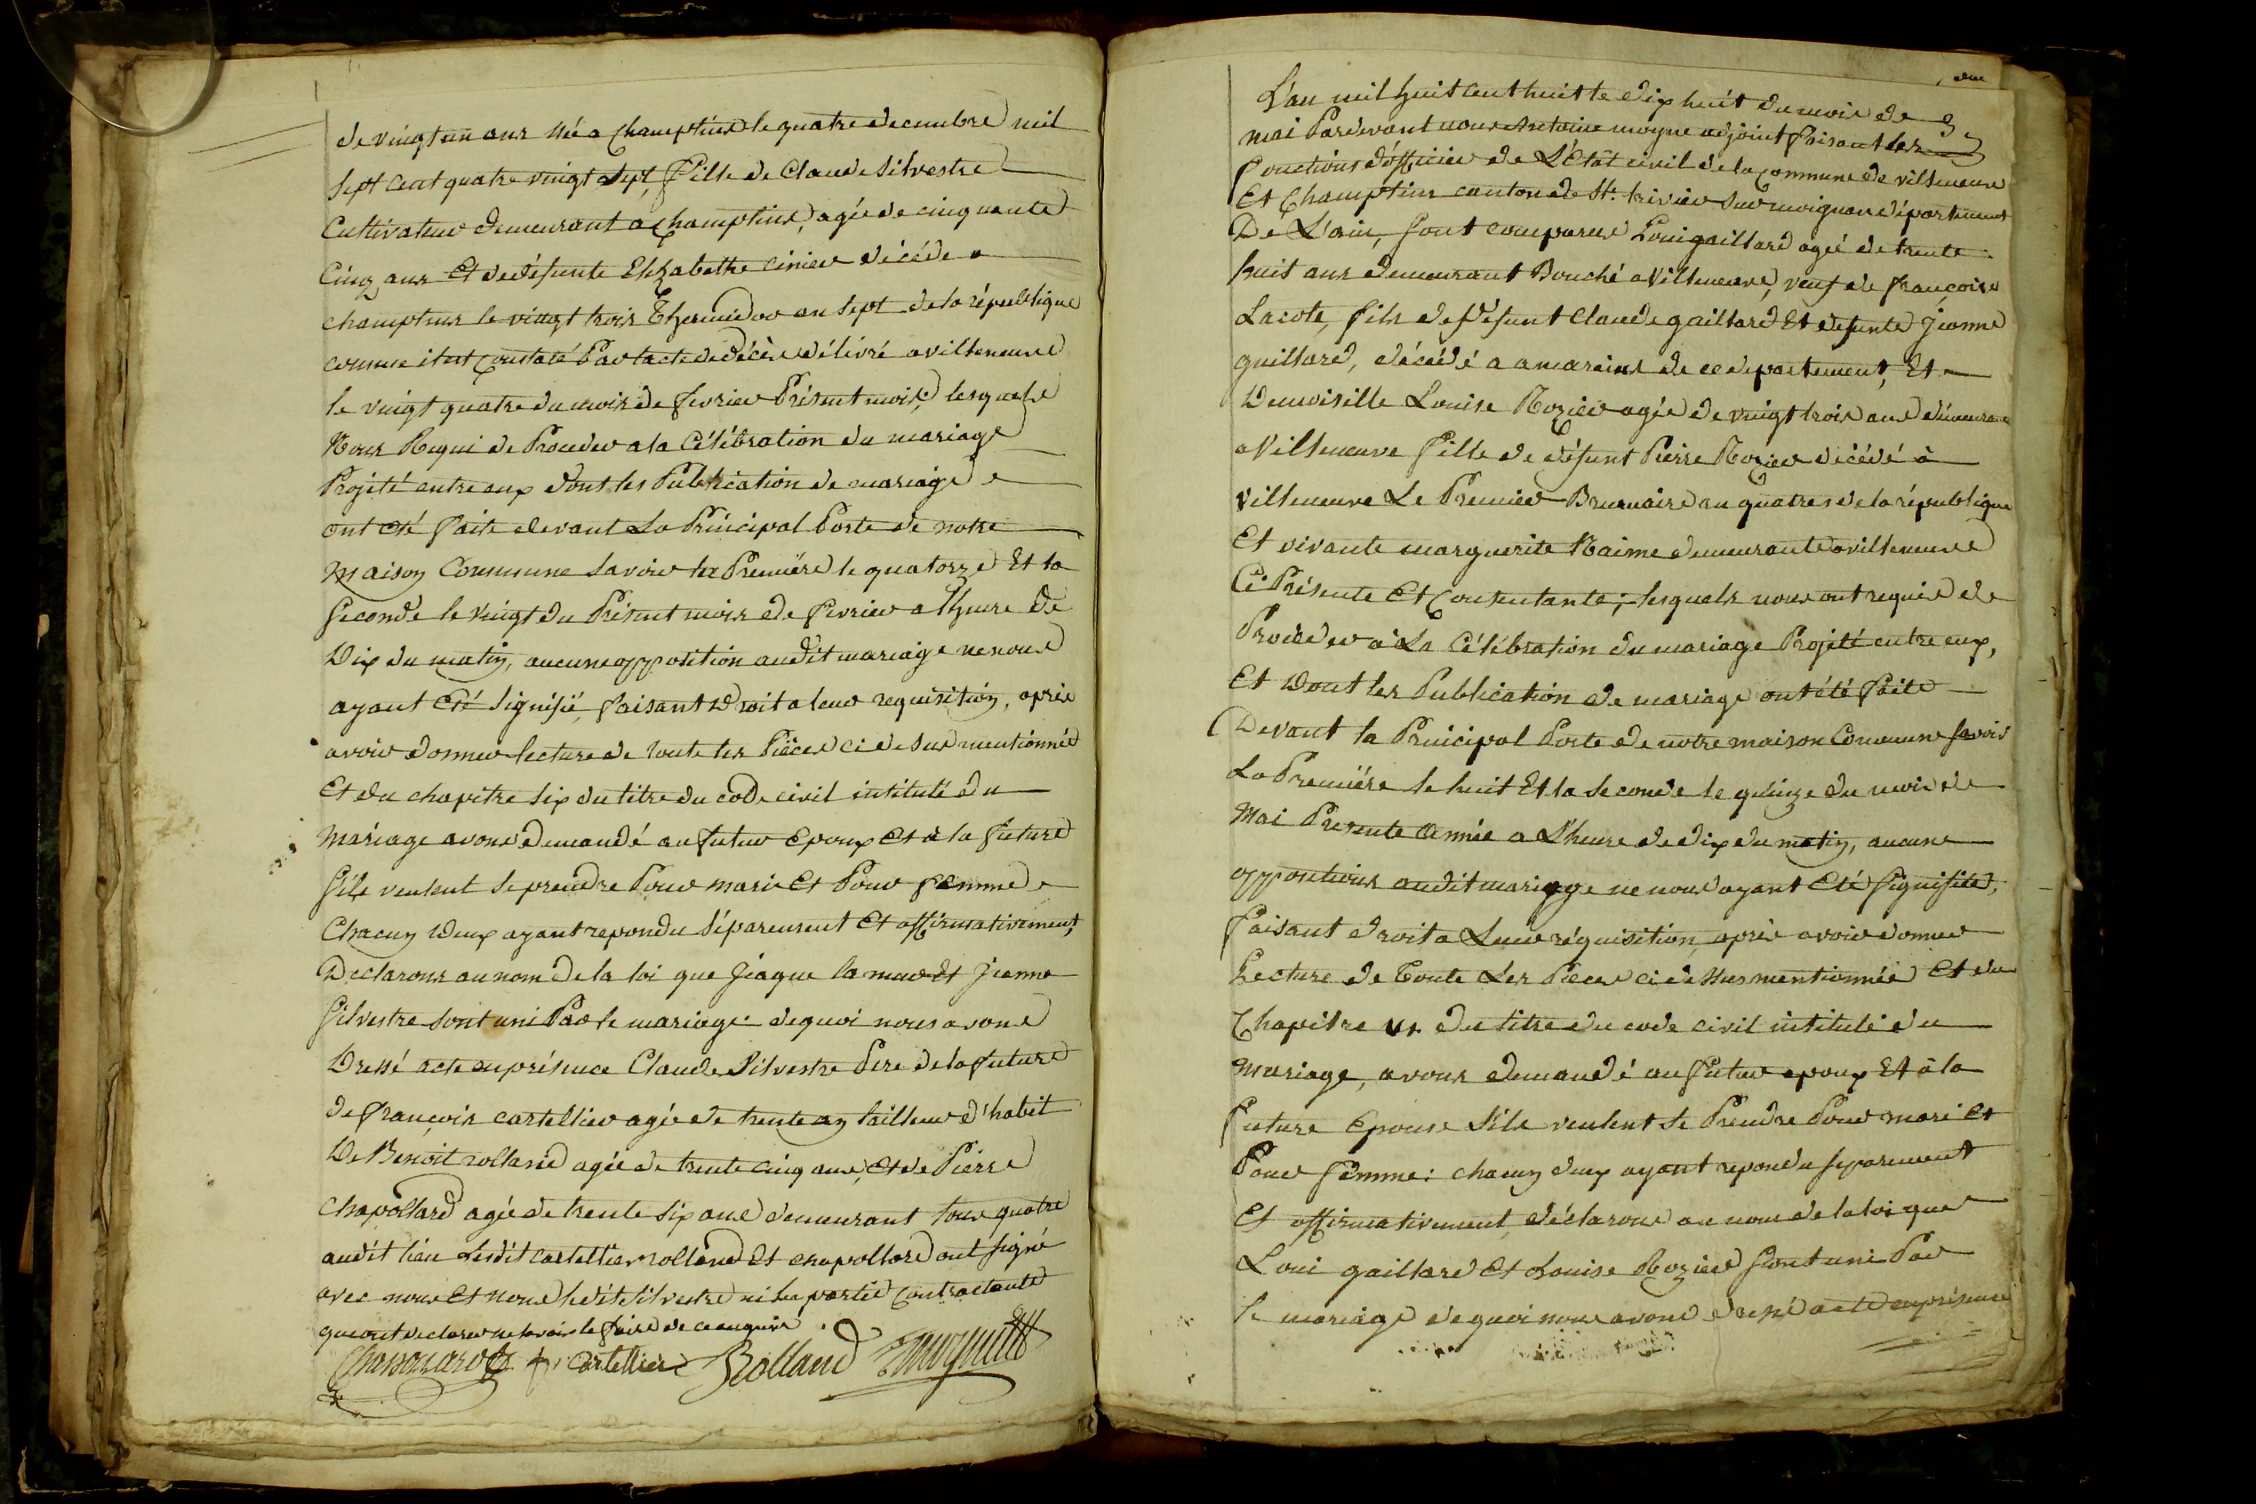 de vingt un ans Née a Champteins le quatre decembre mil
sept cent quatre vingt sept, fille de Claude Silvestre
Cultivateur demeurant a Champteins, agée de cinquante
Cinq ans Et de défunte Elizabethe Cinier décédé a
champteins le vingt trois Thermidor an sept de la république
comme il est Constaté Par lacte de décès délivré a villeneuve
le vingt quatre du mois de fevrier Présent mois, lesquels
Nous Requi de Proceder a la Célébration du mariage
Projeté entre eux dont les Publication de mariage
ont été faite devant La Principal Porte de notre
Maison Commune Savoir la Première le quatorze Et la
Seconde le vingt du Présent mois de fevrier a lheure De
Dix du matin, aucune opposition audit mariage ne nous
ayant Eté Signifié, faisant Droit a leur requisition, après
avoir donner lecture de toute les Pièces ci desus mentionnée
Et du chapitre Six du titre du code civil intitulé du
Mariage avons demandé au futur Epoux Et à la future
S'ils veulent Se prendre Pour mari Et Pour femme
Chacun Deux ayant repondu Séparement Et affirmativement,
Declarons au nom De la loi que Jiaque lamur Et Jeanne
Silvestre Sont uni Par le mariage dequoi nous avons
Dressé acte en présence Claude Silvestre Pere de la future
de françois cartellier agée de trente an tailleur d'habit
De Benoit rolland agée de trente cinq ans, Et de Pierre
Chapollard agée de trente Six ans demeurant tous quatre
audit lieu Lesdit Cartellier rolland Et chapollard ont Signé
avec nous Et nous ledit Silvestre ni les partie Contractante
que ont declarer ne savoir le faire de ce enquis
fr cartellier Rolland
L'an mil huit cent huit le dix huit du mois de
mai Pardevant nous Antoine moyne adjoint faisant les
fonctions d'officier de L'Etat civil de la Commune de villeneuve
Et Champteins canton de St. trivier Sur moignan département
De L'ain, Sont comparus Loui gaillard agée de trente
huit ans demeurant Bouché a Villeneuve, veuf de françoise
Lacote, fils de défunt Claude gaillard Et defunte Jeanne
guillard, décédé a amareins de ce departement, Et
Demoiselle Louise Rozier agée de vingt trois ans demeurant
a Villeneuve fille de défunt Pierre Rozier décédé à
Villeneuve Le Premier Brumaire an quatres de la république
Et vivante marguerite Naime demeurante a villeneuve
Ci Présente Et Consentante; lesquels nous ont requis de
Proceder à La Célébration du mariage Projeté entre eux,
Et Dont les Publication de mariage ont été faite
Devant la Principal Porte de notre maison Commune Savoir
La Première le huit Et la Seconde le quinze du mois de
Mai Presente Année a L'heure de dix du matin, aucune
oppositions audit mariage ne nous ayant Eté Signifiée,
faisant droit a Leur réquisition, après avoir donner
Lecture de Toute Les Pièces ci dessus mentionnée Et du
Chapitre VI. du titre du code civil intitulé du
Mariage, avons demandé au futur epoux Et à la
future Epouse S'ils veulent Se Prendre Pour mari Et
Pour femme: chacun deux ayant repondu separement
Et affirmativement, déclarons au nom de la loi que
Loui gaillard Et Louise Rozier Sont uni Par
le mariage de quoi nous avons dressé acte en présence